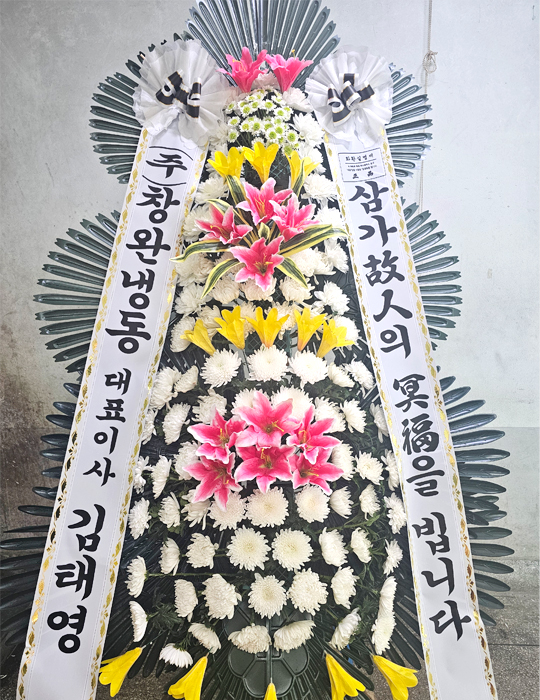 (주)창완냉동 대표이사 김태영
삼가 故人의 冥福을 빕니다